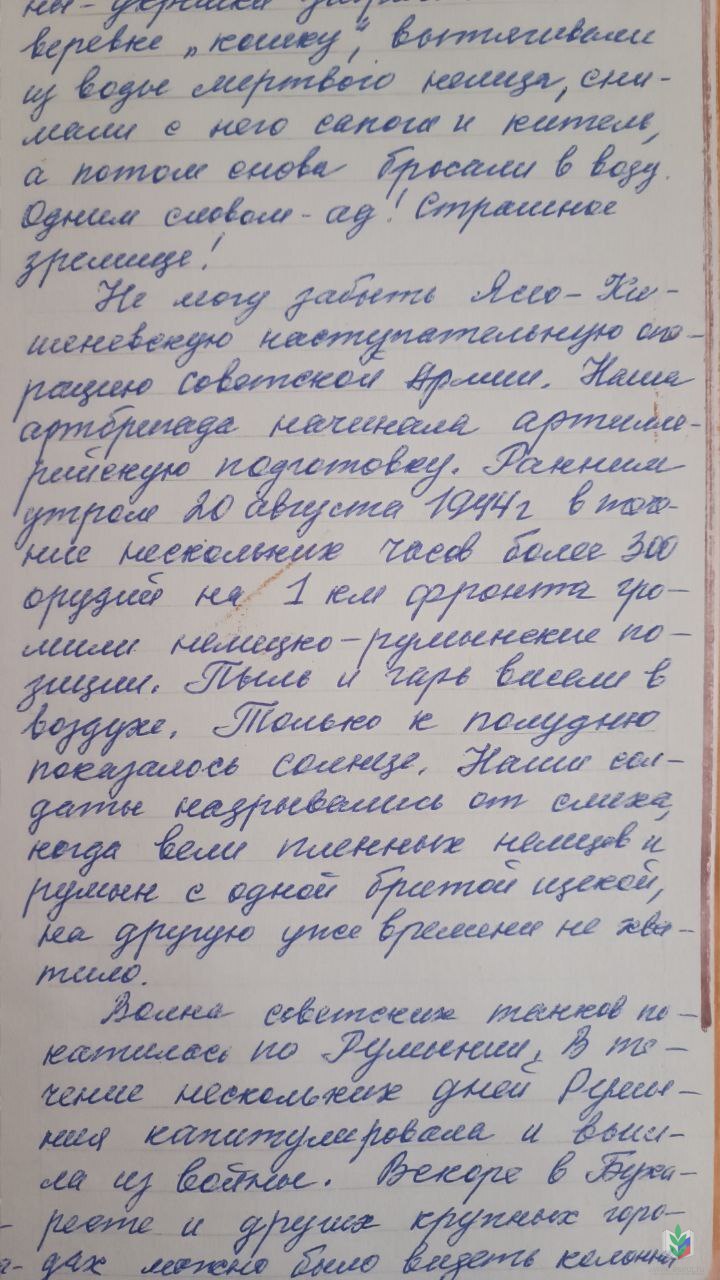 веревке „кошку", вытягивали
из воды мертвого немца, сни-
мали с него сапоги и китель,
а потом снова бросали в воду.
Одним словом - ад! Страшное
зрелище!
Не могу забыть Ясско-Ки-
шеневскую наступательную опе-
рацию Советской Армии. Наша
артбригада начинала артилле-
рийскую подготовку. Ранним
утром 20 августа 1944 г в тече-
ние нескольких часов более 300
орудий на 1 км фронта гро-
мили немецко-румынские по-
зиции. Пыль и гарь висели в
воздухе. Только к полудню
показалось солнце. Наши сол-
даты надрывались от смеха,
когда вели пленных немцев и
румын с одной бритой щекой,
на другую уже времени не хва-
тило.
Волна советских танков по-
катилась по Румынии. В те-
чение нескольких дней Румы-
ния капитулировала и выш-
ла из войны. Вскоре в Буха-
ресте и других крупных горо-
дах можно было видеть колонны